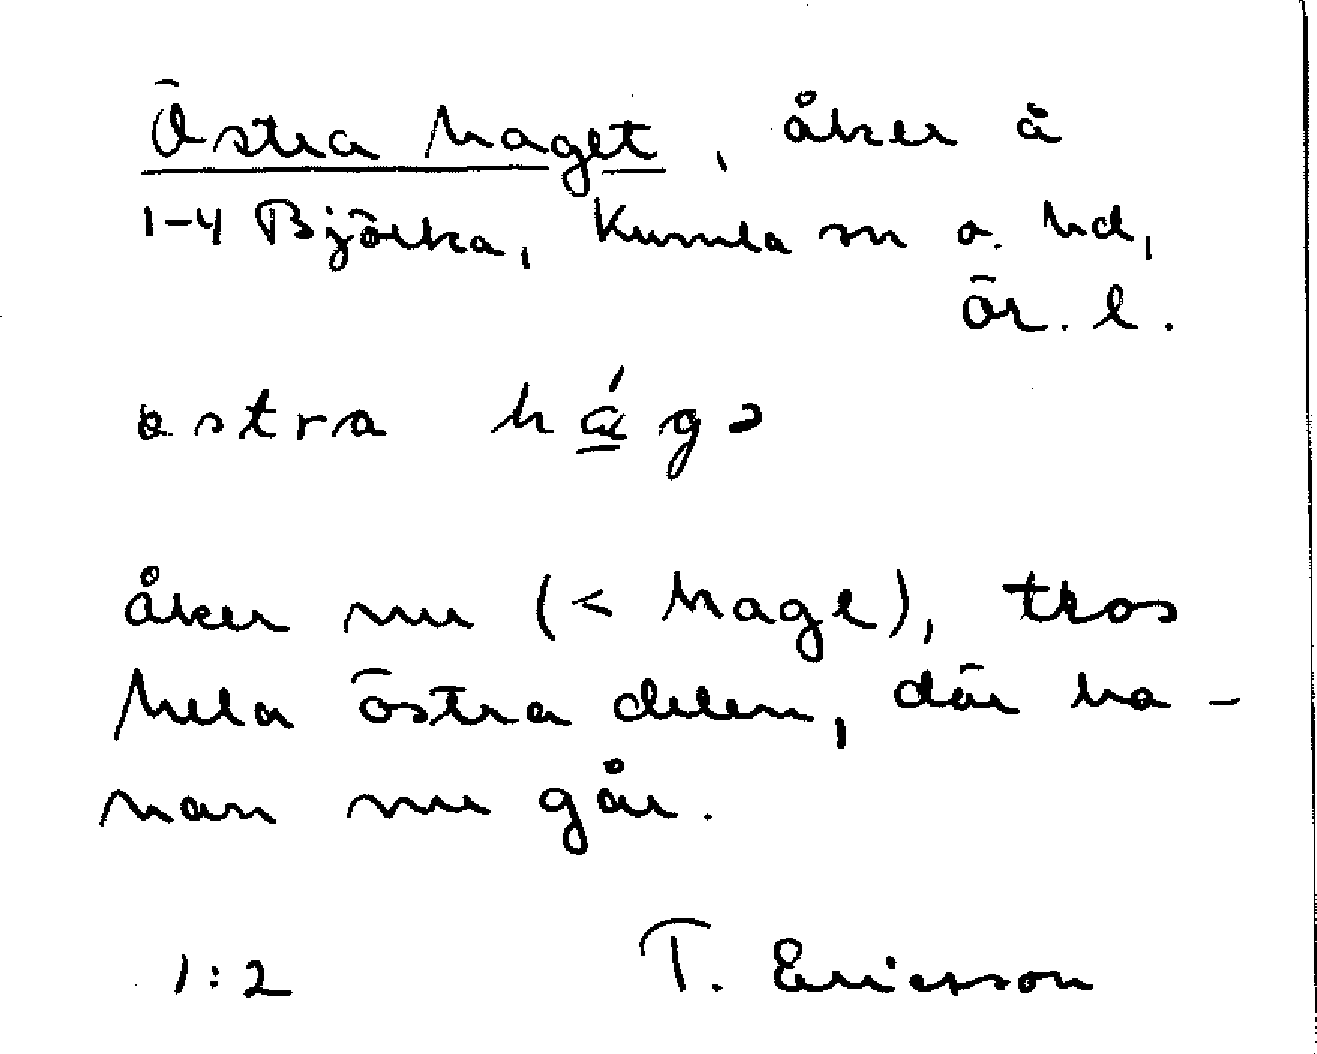 Östra haget, åker å
1-4 Björka, Kumla sn o. hd,
Ör. l.
østra hágə
åker nu (< hage), tros
hela östra delen, där ha-
nan nu går.
1:2 T. Ericsson